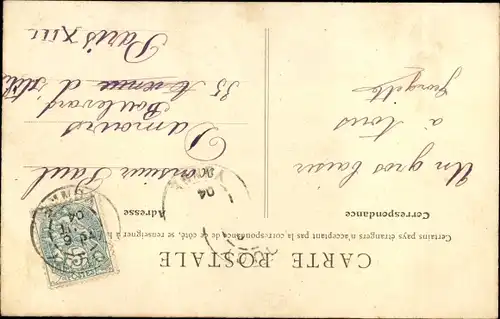 CARTE POSTALE
Certains pays étrangers n'acceptant pas la correspondance de ce côté, se renseigner à la
Correspondance
Adresse
Un gros baiser
à tous
Georgette
Monsieur Paul
Damours
35 Avenue d'Italie
Boulevard
Paris XIII
04